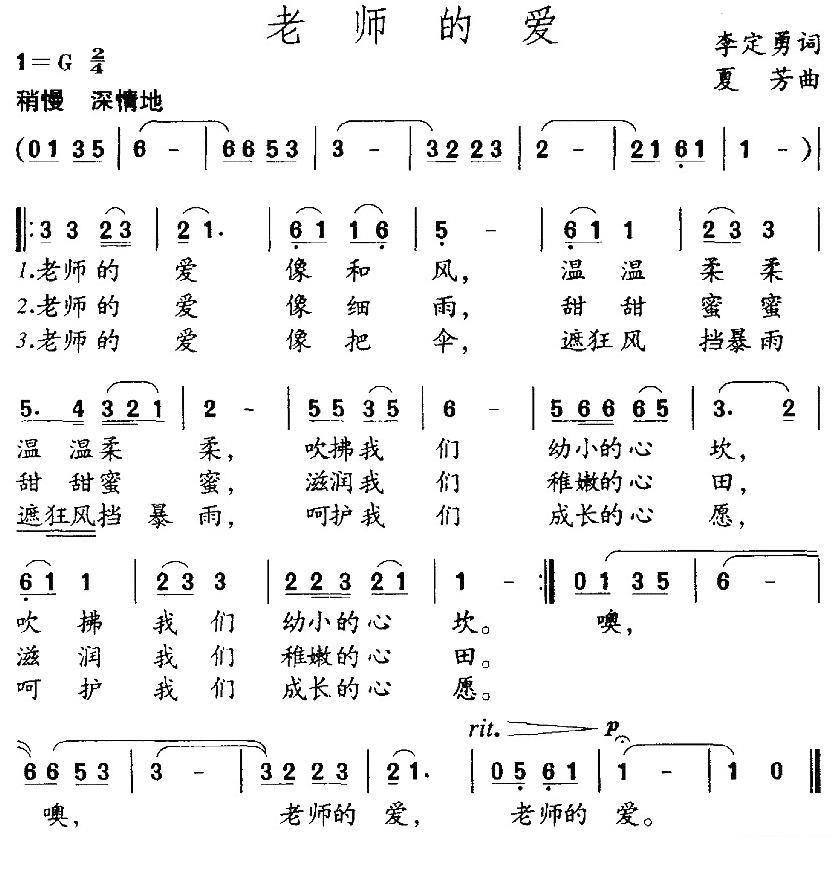 老师的爱
李定勇词
1=G 2/4
夏 芳曲
稍慢 深情地
(01 35 | 6 - | 66 53 | 3 - | 32 23 | 2 - | 21 61 | 1 - )|
‖: 3 3 23 | 2 1. | 61 16 | 5 - | 61 1 | 23 3 |
1.老师的 爱 像 和 风, 温 温 柔 柔
2.老师的 爱 像 细 雨, 甜 甜 蜜 蜜
3.老师的 爱 像 把 伞, 遮狂风 挡暴雨
5. 4 321 | 2 - | 55 35 | 6 - | 566 65 | 3. 2 |
温 温柔 柔, 吹拂我 们 幼小的心 坎,
甜 甜蜜 蜜, 滋润我 们 稚嫩的心 田,
遮狂风挡 暴 雨, 呵护我 们 成长的心 愿,
61 1 | 23 3 | 223 21 | 1 - :‖ 01 35 | 6 - |
吹 拂 我 们 幼小的心 坎。 噢,
滋 润 我 们 稚嫩的心 田。
呵 护 我 们 成长的心 愿。
rit. p
66 53 | 3 - | 32 23 | 21. | 05 61 | 1 - | 1 0 ‖
噢, 老师的 爱, 老师的 爱。